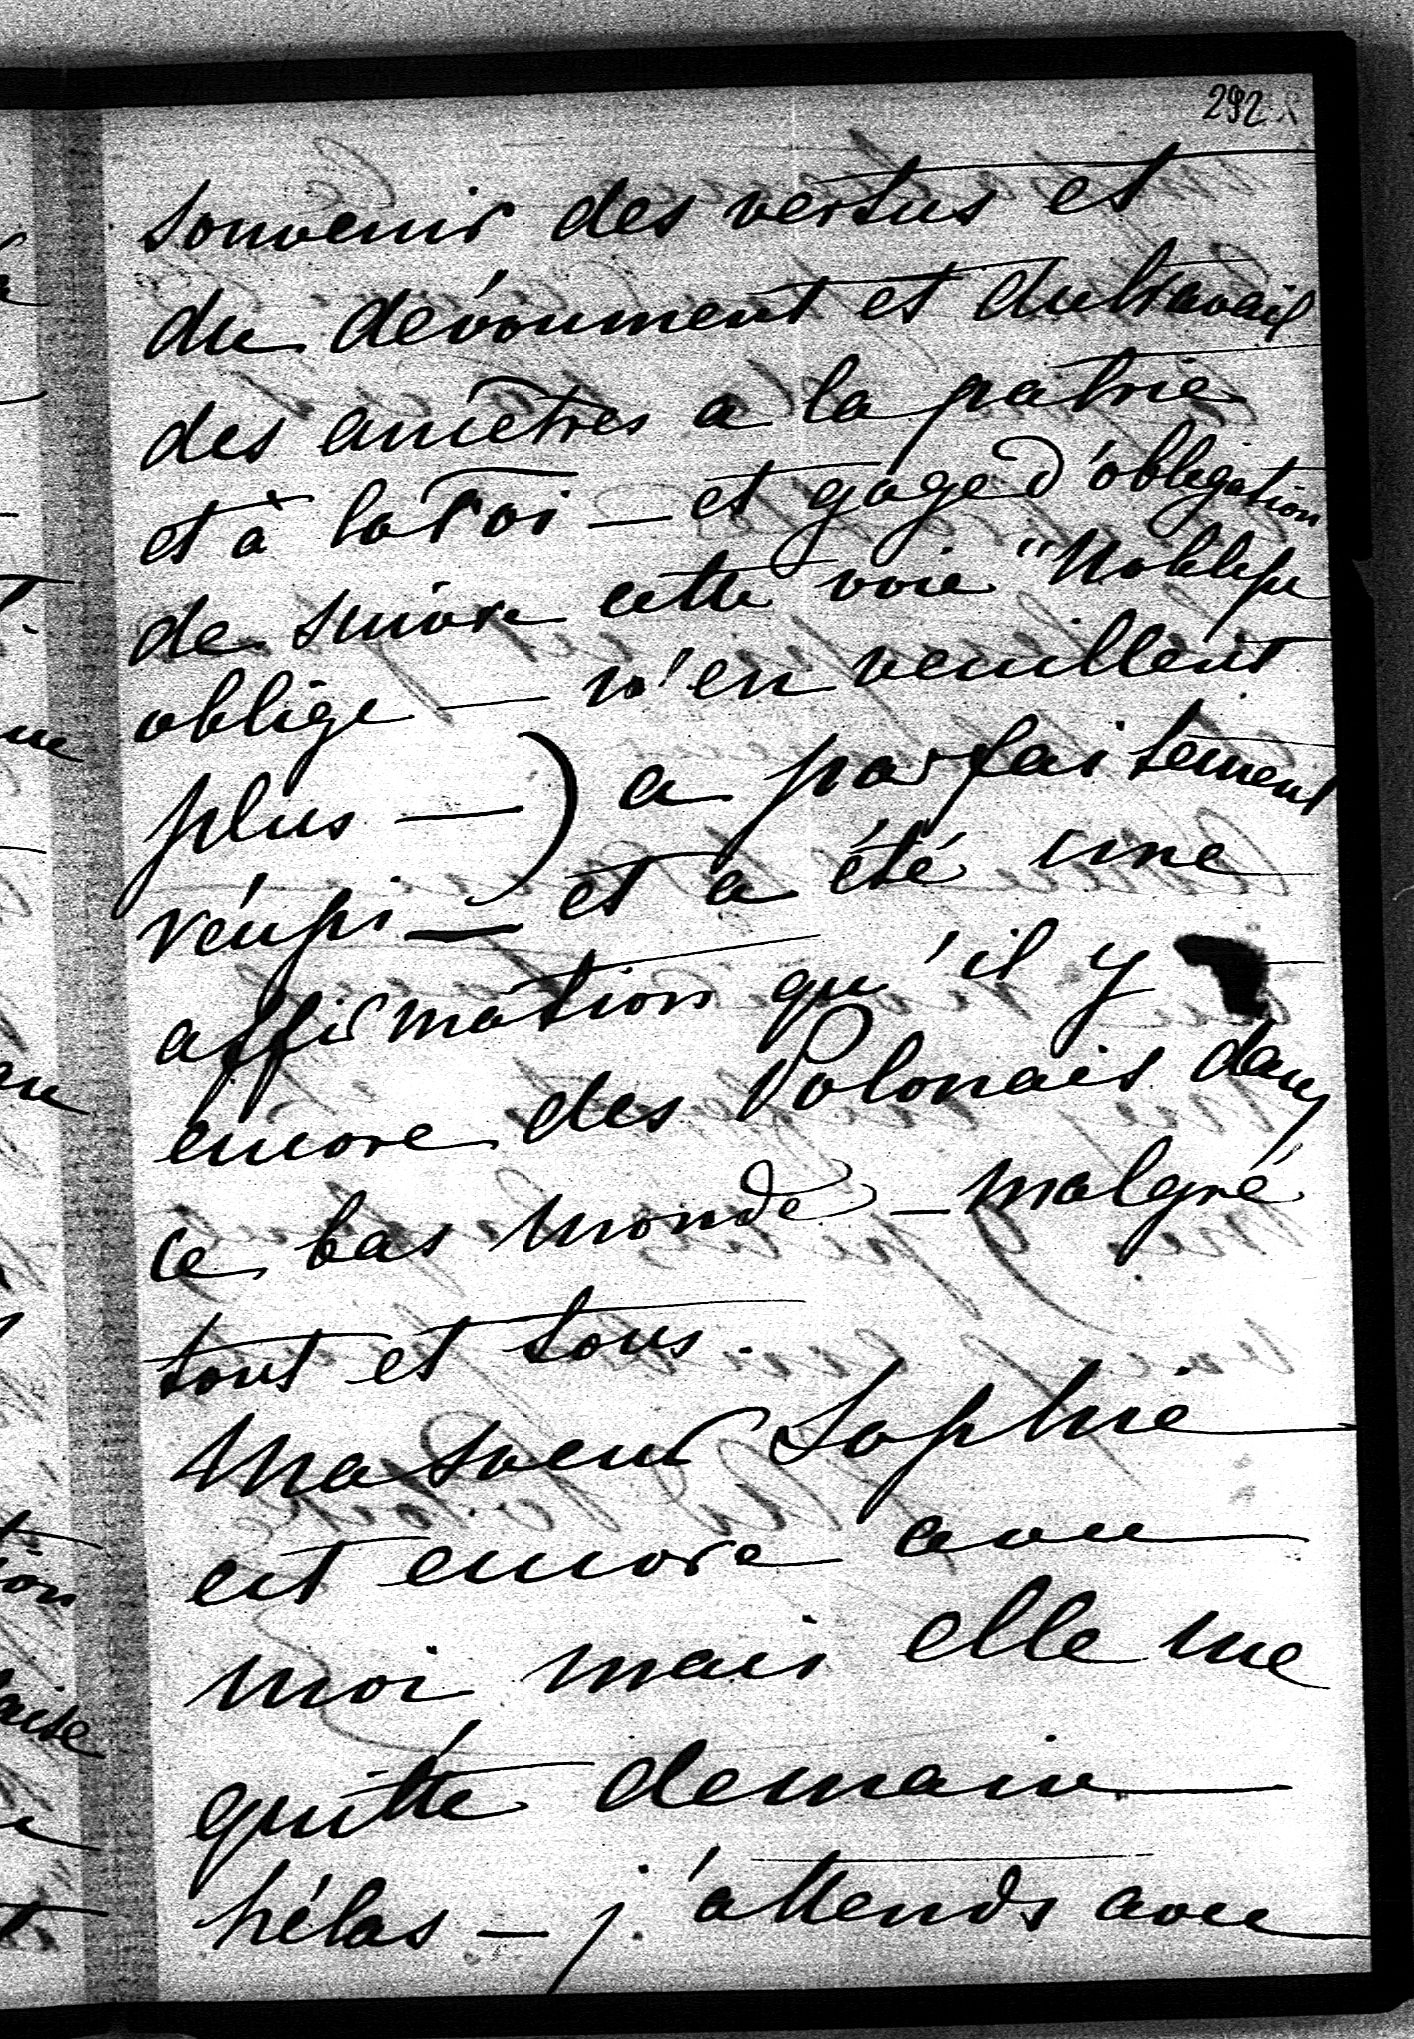 292
souvenir des vertus et
du dévoument et du travail
des ancêtres a la patrie
et à la Foi — et gage d'obligation
de suivre cette voie "Noblesse
oblige — n'en veuillent
plus —) a parfaitement
réussi — et a été une
affirmation qu'il y
encore des Polonais dans
ce bas monde — malgré
tout et tous.
Ma soeur Sophie
est encore avec
moi mais elle me
quitte demain
hélas — j'attends avec